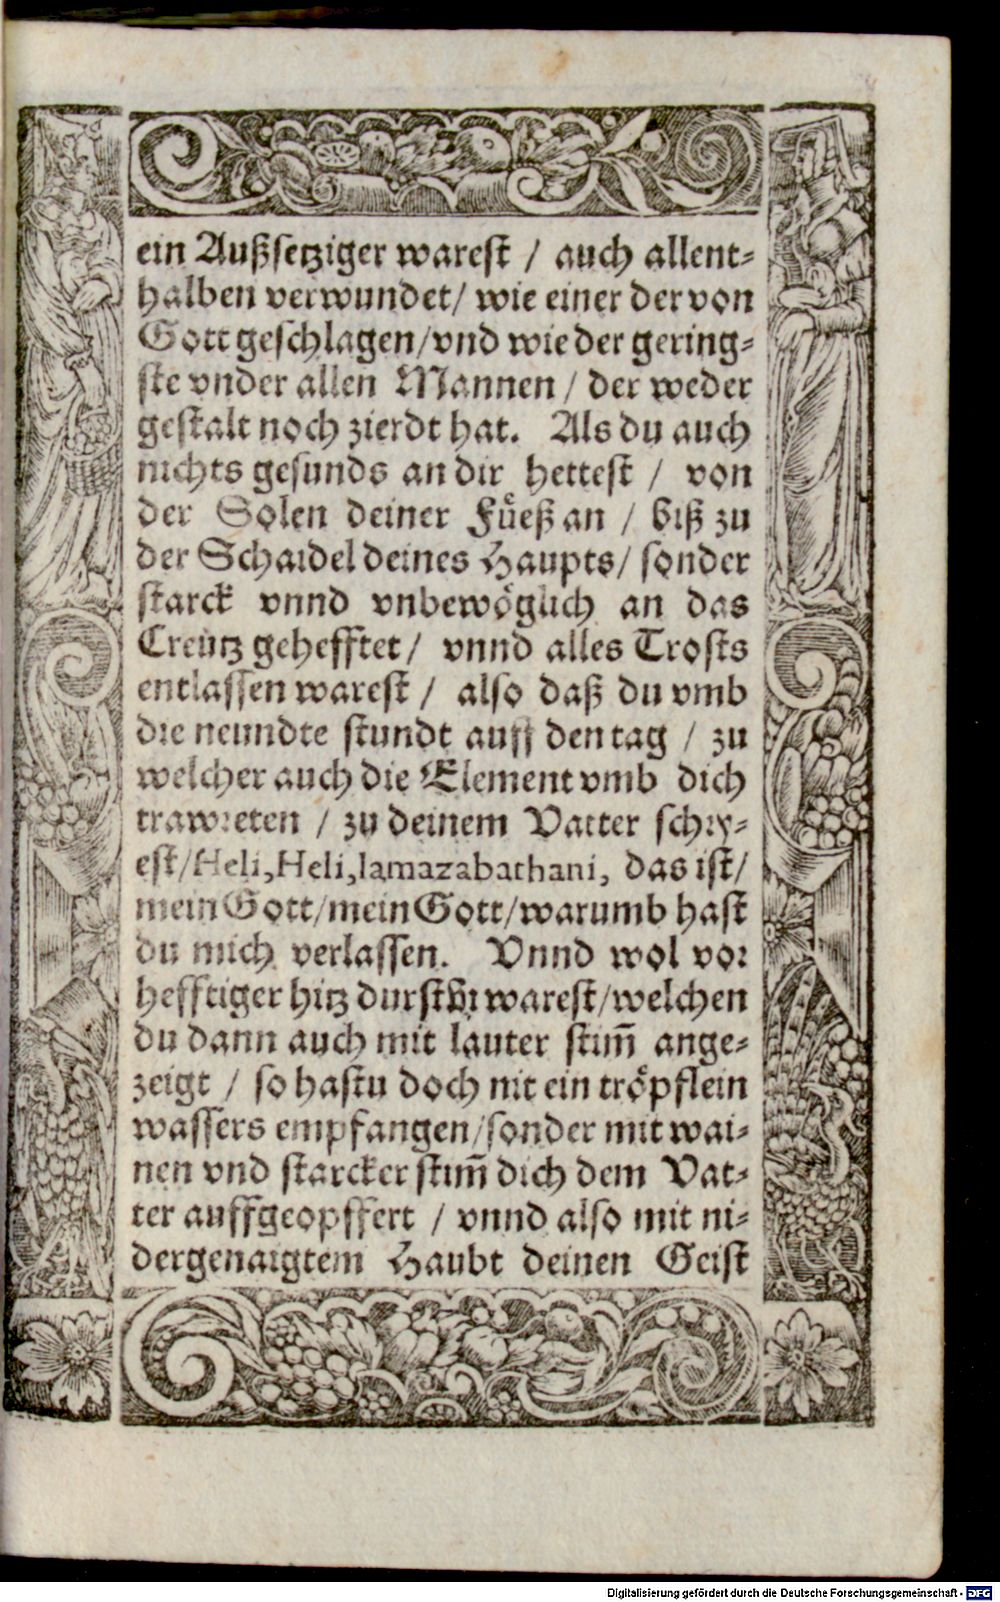 ein Außsetziger warest / auch allent⸗
halben verwundet/ wie einer der von
Gott geschlagen/vnd wie der gering⸗
ste vnder allen Mannen / der weder
gestalt noch zierdt hat. Als du auch
nichts gesunds an dir hettest / von
der Solen deiner Füeß an / biß zu
der Schaidel deines Haupts/ sonder
starck vnnd vnbewöglich an das
Creütz gehefftet / vnnd alles Trosts
entlassen warest / also daß du vmb
die neundte stundt auff den tag / zu
welcher auch die Element vmb dich
trawreten / zu deinem Vatter schry⸗
est/Heli, Heli, lamazabathani, das ist/
mein Gott/mein Gott/warumb hast
du mich verlassen. Vnnd wol vor
hefftiger hitz durstig warest/welchen
du dann auch mit lauter stim̃ ange⸗
zeigt / so hastu doch nit ein tröpflein
wassers empfangen/sonder mit wai⸗
nen vnd starcker stim̃ dich dem Vat⸗
ter auffgeopffert / vnnd also mit ni⸗
dergenaigtem Haubt deinen Geist
Digitalisierung gefördert durch die Deutsche Forschungsgemeinschaft - DFG